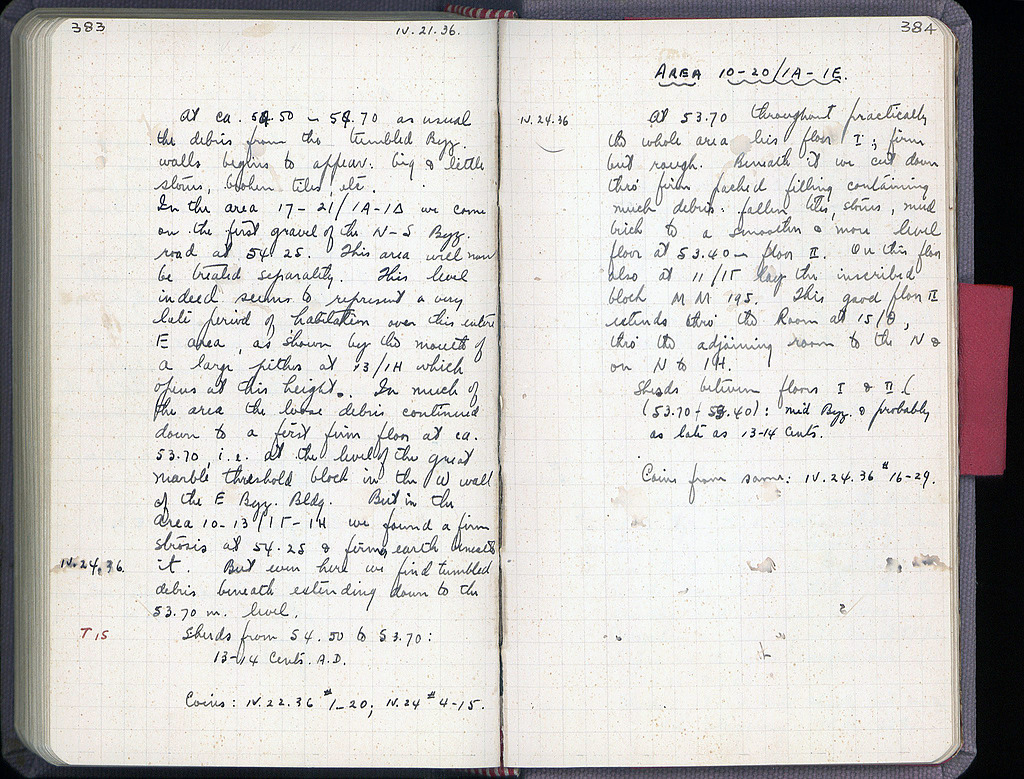 383
IV.21.36.
At ca. 54.50 – 54.70 as usual
the debris from the tumbled Byz.
walls begins to appear. big & little
stones, broken tiles, etc.
In the area 17–21/1A–1Δ we come
on the first gravel of the N–S Byz.
road at 54.25. This area will now
be treated separately. This level
indeed seems to represent a very
late period of habitation over this entire
E area, as shown by the mouth of
a large pithos at 13/1H which
opens at this height. In much of
the area the loose debris continued
down to a first firm floor at ca.
53.70 i.e. at the level of the great
marble threshold block in the W wall
of the E Byz. Bldg. But in the
area 10–13/1Γ–1H we found a firm
strosis at 54.25 & firm earth beneath
IV.24.36. it. But even here we find tumbled
debris beneath extending down to the
53.70 m. level.
T 15 Sherds from 54.50 to 53.70:
13–14 Cents. A.D.
Coins: IV.22.36 #1–20; IV.24 #4–15.
384
AREA 10–20/1A–1E.
IV.24.36 At 53.70 throughout practically
the whole area lies floor I; firm
but rough. Beneath it we cut down
thro' firm packed filling containing
much debris: fallen tiles, stones, mud
brick to a smoother & more level
floor at 53.40 – floor II. On this floor
also at 11/1Γ lay the inscribed
block MM 195. This good floor II
extends thro' the Room at 15/Θ,
thro' the adjoining room to the N &
on N to 1H.
Sherds between floors I & II (
(53.70 – 53.40): mid Byz. & probably
as late as 13–14 Cents.
Coins from same: IV.24.36 #16–29.